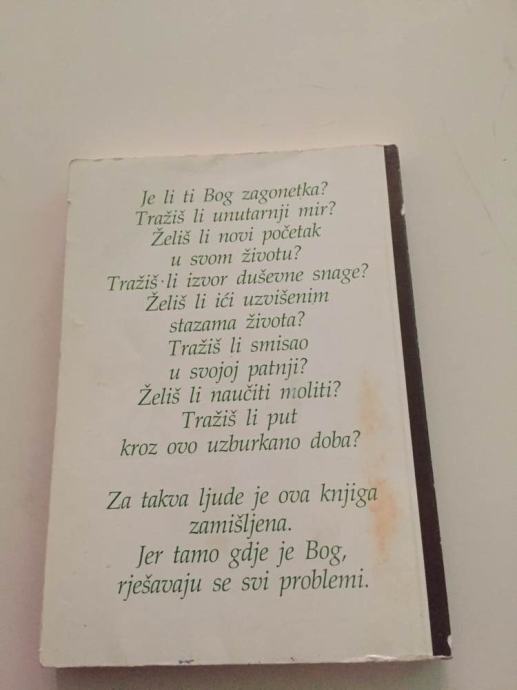 Je li ti Bog zagonetka?
Tražiš li unutarnji mir?
Želiš li novi početak
u svom životu?
Tražiš li izvor duševne snage?
Želiš li ići uzvišenim
stazama života?
Tražiš li smisao
u svojoj patnji?
Želiš li naučiti moliti?
Tražiš li put
kroz ovo uzburkano doba?
Za takva ljude je ova knjiga
zamišljena.
Jer tamo gdje je Bog,
rješavaju se svi problemi.